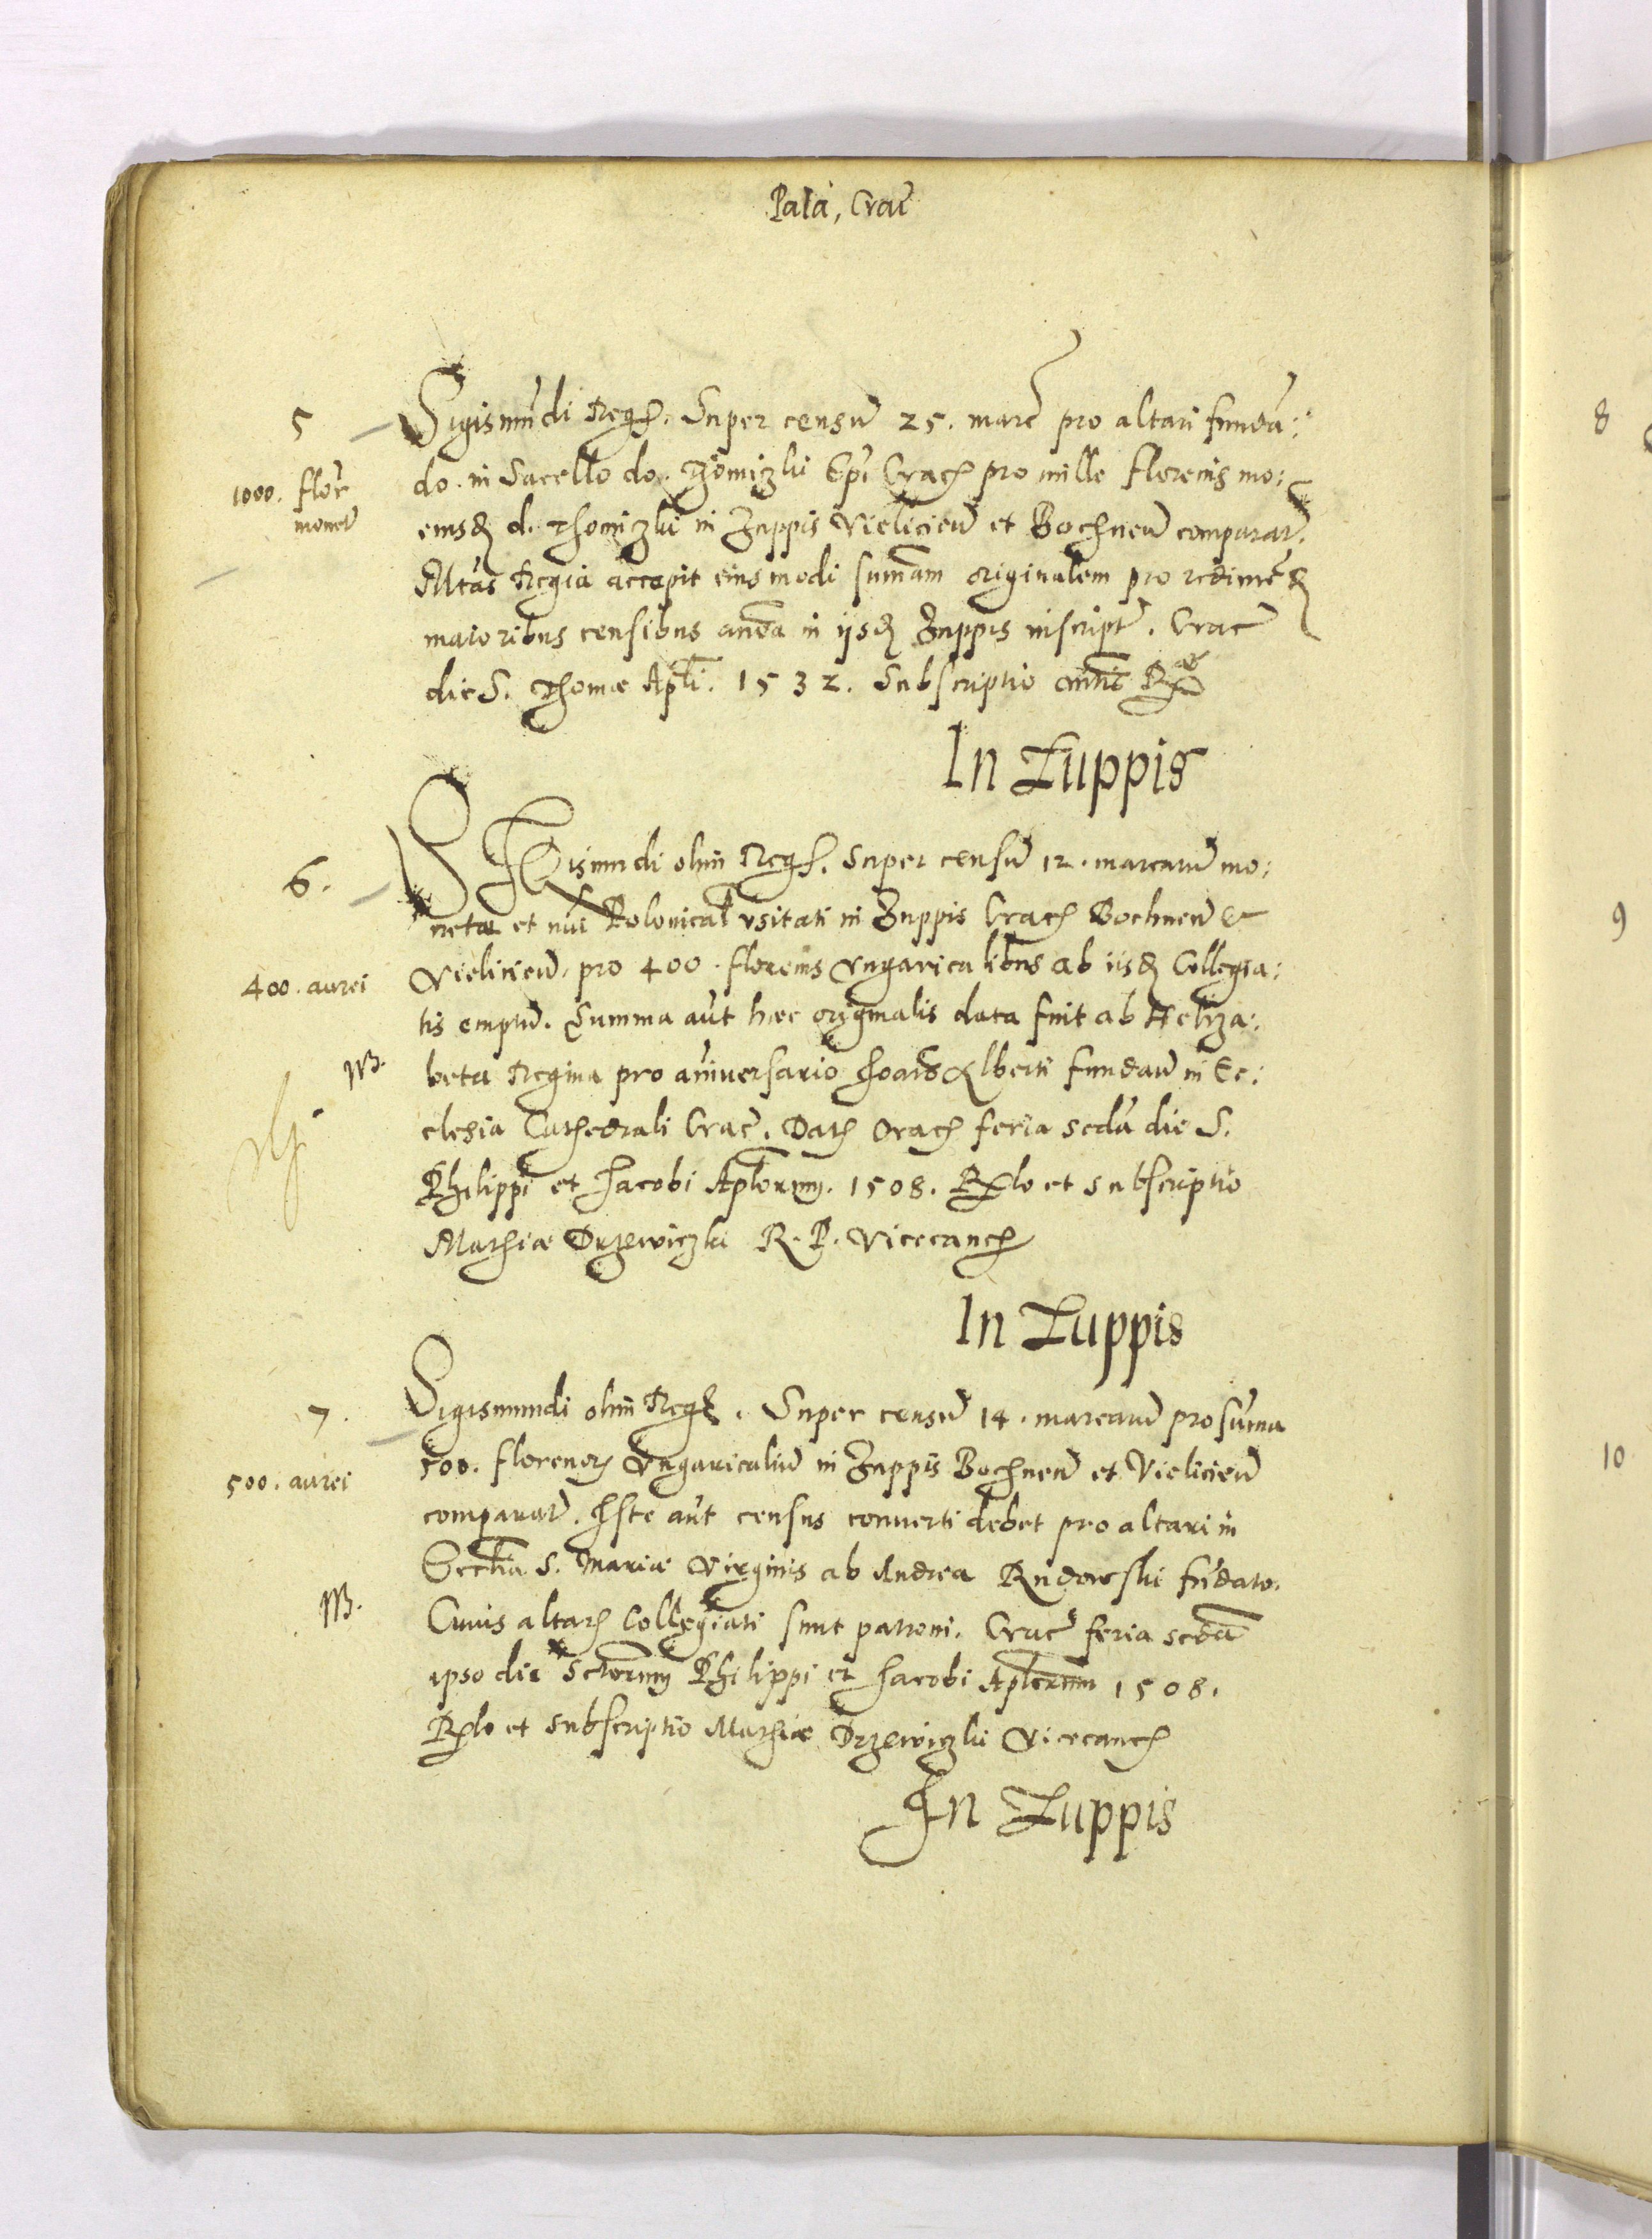 Pala, Crac̄
5
Sigismūdi Reg. Super censū 25. marc̄ pro altari fundā:
1000. flor̄
do. in Sacello do. Thomizki Ep̄i Crac pro mille florenis mo:
monet
eiusd d. Thomizki in Zuppis Vielicien̄ et Bochnen̄ comparat.
Mt̄as Regia accepit eiusmodi summam originalem pro redimēd
maioribus censibus anteā in iisd Zuppis inscript. Crac̄
die S. Thomæ Apl̄i. 1532. Subscriptio
In Zuppis
6.
SIGismundi olim Reg. Super censū 12. marcarū mo:
netæ et nūi Polonical̄ usitati in Zuppis Crac Bochnen̄ &
400. aurei
Vielicien̄. pro 400. florenis vngaricalibus ab iisd Collegia:
tis emptū. Summa aūt hæc originalis data fuit ab Heliza:
NB.
beta Regina pro an̄iuersario Joan̄is Alberti fundatū in Ec:
clesia Cathedrali Crac̄. Dat Crac feria scdā die S.
Philippi et Jacobi Apl̄orum. 1508. Rlo et subscriptio
Mathiæ Drzewiczki R. P. Vicecanc
In Zuppis
7.
Sigismundi olim Reg. Super censū 14. marcarū pro sūma
500. aurei
500. florenor Vngaricaliū in Zuppis Bochnen̄ et Vielicien̄
comparat. Iste aūt census conuerti debet pro altari in
Eccl̄ia S. Mariæ Virginis ab Andrea Rudowski fūdato.
NB.
Cuius altar Collegiati sunt patroni. Crac̄ feria scdā
ipso die Sctorum Philippi et Jacobi Apl̄orum 1508.
Rlo et subscriptio Mathiæ Drzewiczki Vicecanc
In Zuppis
8
9
10